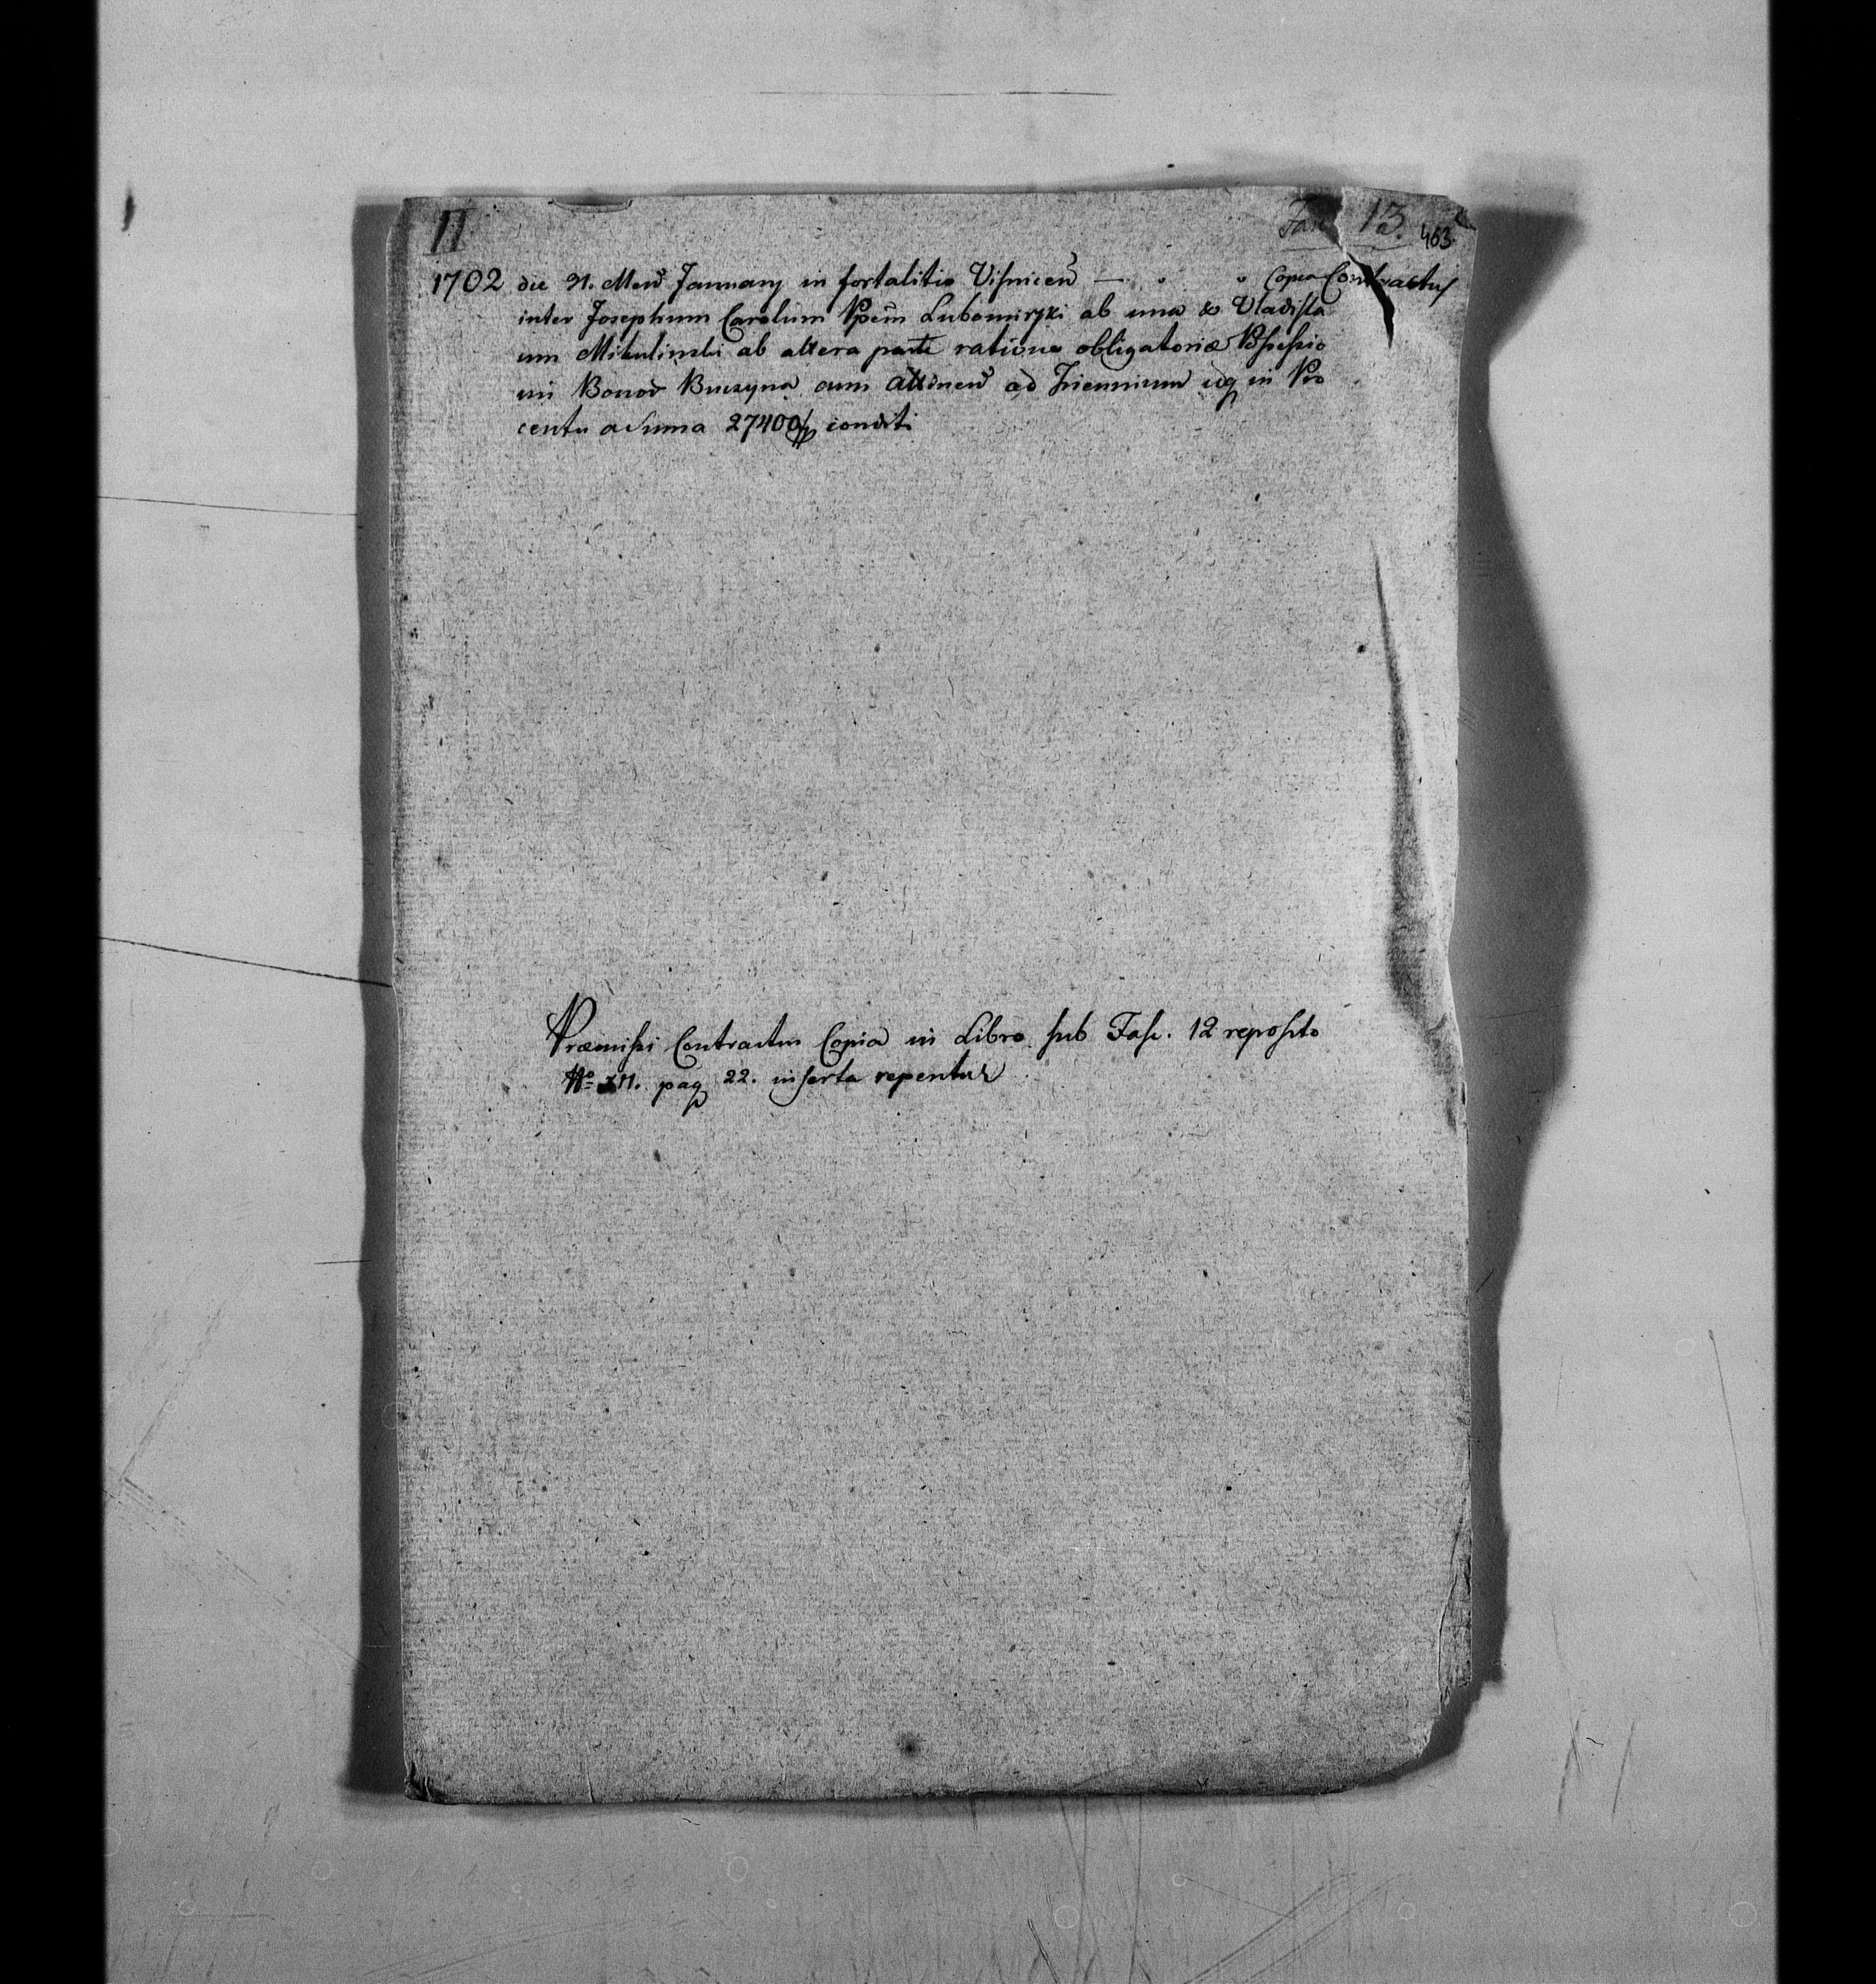 11
Fasc 13.
463.
1702 die 31. Mens January in fortalitio Visnicen — " " Copia Contractus
inter Josephum Carolum Ppem Lubomirski ab una & Vladisla
um Mikulinski ab altera parte ratione obligatoriæ Possessio
nis Bonor Buczyna cum attinen ad Triennium idq in Pro
centu a Suma 27400 conditi
Præmissi Contractus Copia in Libro sub Fasc. 12 reposito
No XII. pag 22. inserta reperitur